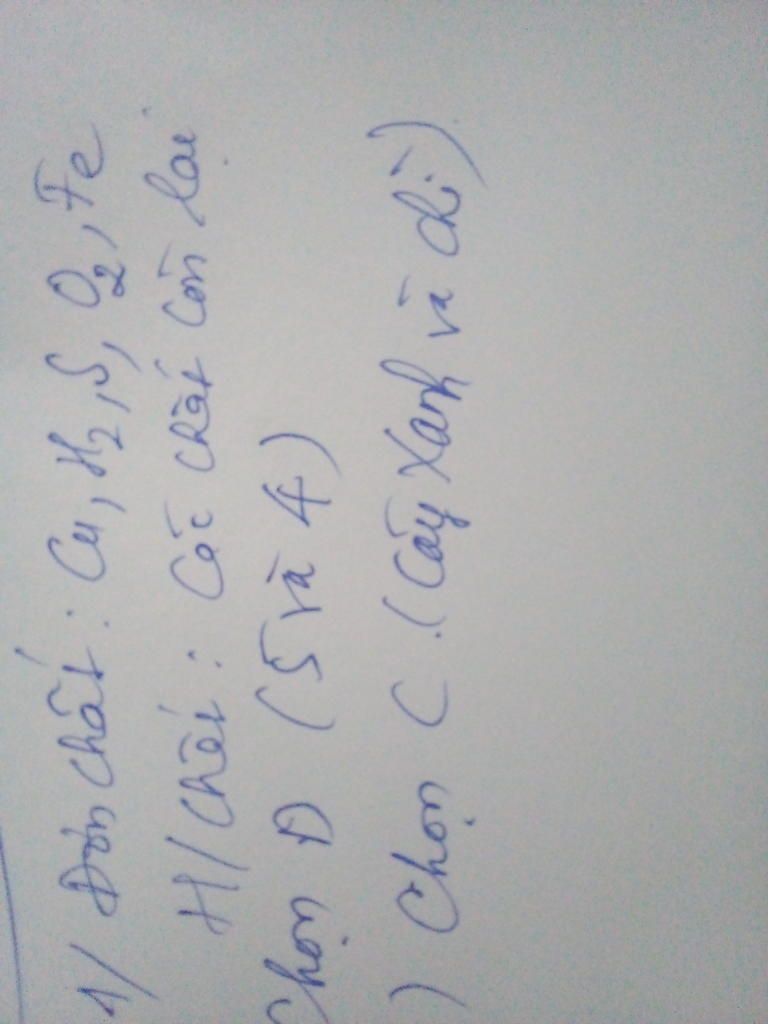 1/ Đơn chất: Cu, H2, S, O2, Fe
H/Chất: Các chất còn lại
Chọn D (5 và 4)
) Chọn C (Cây xanh và chì)